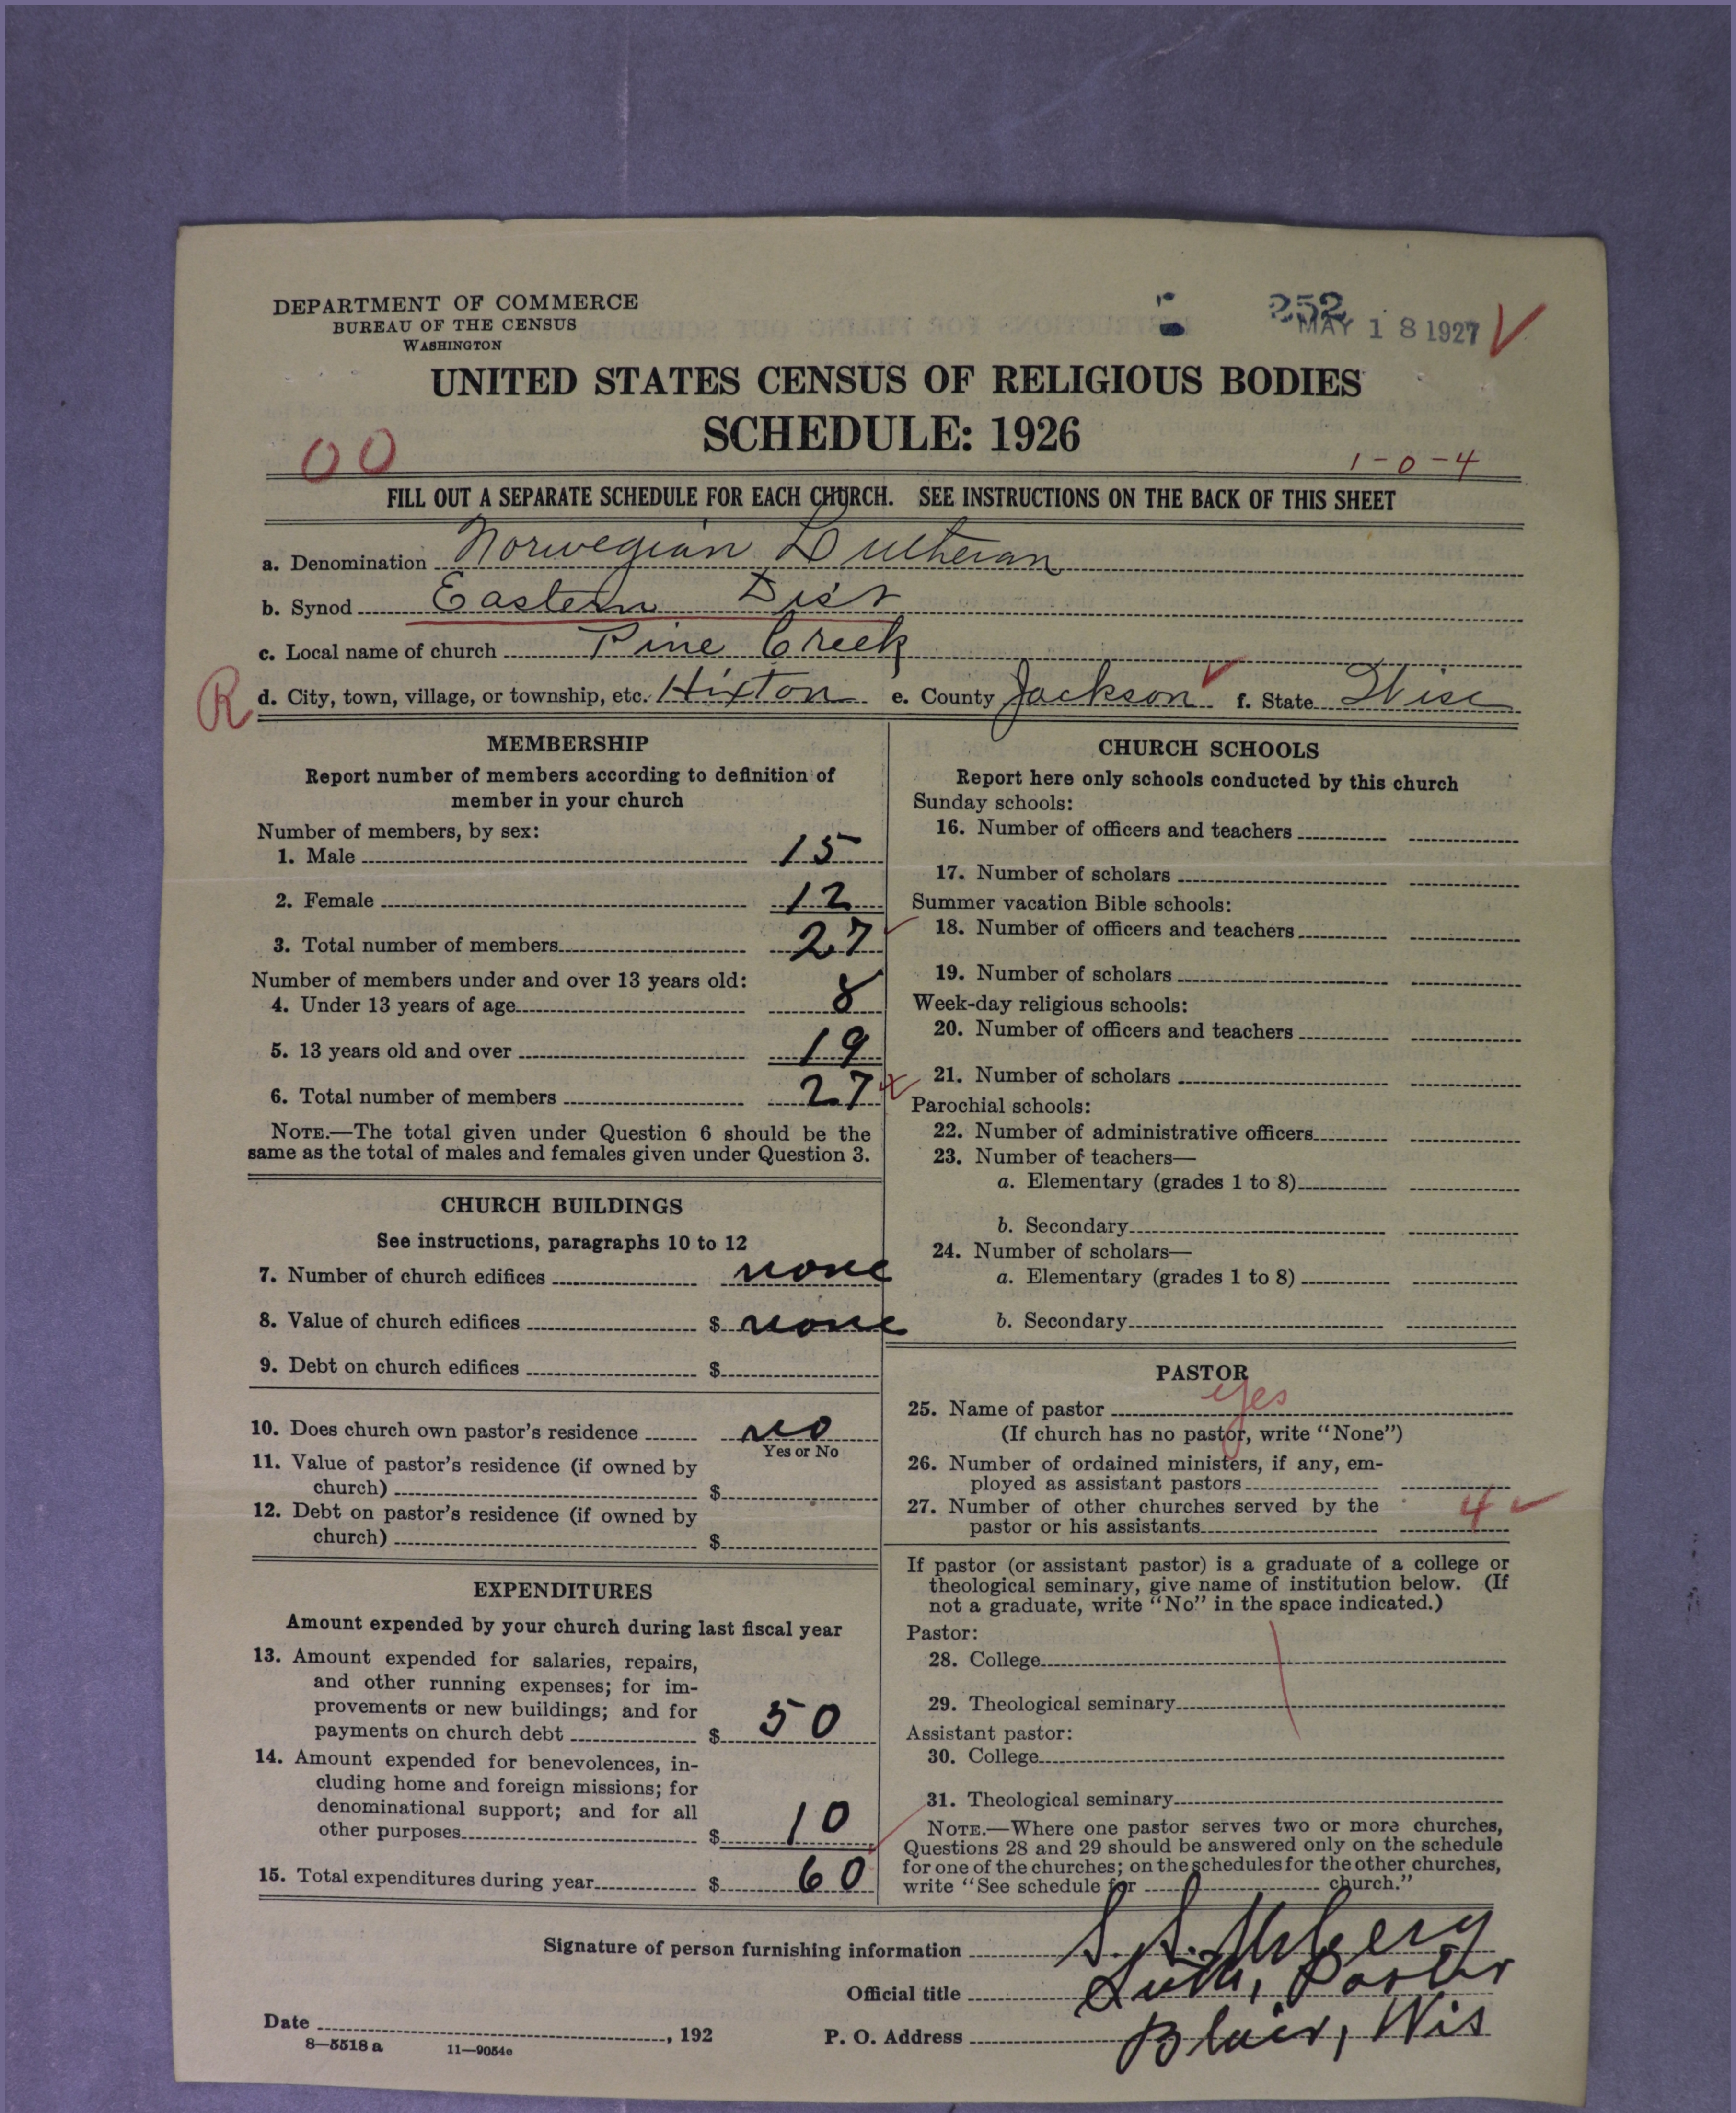 DEPARTMENT OF COMMERCE
BUREAU OF THE CENSUS
WASHINGTON
252
MAY 18 1927
UNITED STATES CENSUS OF RELIGIOUS BODIES
SCHEDULE: 1926
00
1-0-4
FILL OUT A SEPARATE SCHEDULE FOR EACH CHURCH. SEE INSTRUCTIONS ON THE BACK OF THIS SHEET
a. Denomination Norwegian Lutheran
b. Synod Eastern Dist
c. Local name of church Pine Creek
R d. City, town, village, or township, etc. Hixton e. County Jackson f. State Wisc
MEMBERSHIP
Report number of members according to definition of
member in your church
Number of members, by sex:
1. Male 15
2. Female 12
3. Total number of members 27
Number of members under and over 13 years old:
4. Under 13 years of age 8
5. 13 years old and over 19
6. Total number of members 27
NOTE.—The total given under Question 6 should be the
same as the total of males and females given under Question 3.
CHURCH BUILDINGS
See instructions, paragraphs 10 to 12
7. Number of church edifices none
8. Value of church edifices $ none
9. Debt on church edifices $
10. Does church own pastor's residence no
Yes or No
11. Value of pastor's residence (if owned by
church) $
12. Debt on pastor's residence (if owned by
church) $
EXPENDITURES
Amount expended by your church during last fiscal year
13. Amount expended for salaries, repairs,
and other running expenses; for im-
provements or new buildings; and for
payments on church debt $ 50
14. Amount expended for benevolences, in-
cluding home and foreign missions; for
denominational support; and for all
other purposes $ 10
15. Total expenditures during year $ 60
CHURCH SCHOOLS
Report here only schools conducted by this church
Sunday schools:
16. Number of officers and teachers
17. Number of scholars
Summer vacation Bible schools:
18. Number of officers and teachers
19. Number of scholars
Week-day religious schools:
20. Number of officers and teachers
21. Number of scholars
Parochial schools:
22. Number of administrative officers
23. Number of teachers—
a. Elementary (grades 1 to 8)
b. Secondary
24. Number of scholars—
a. Elementary (grades 1 to 8)
b. Secondary
PASTOR
25. Name of pastor yes
(If church has no pastor, write "None")
26. Number of ordained ministers, if any, em-
ployed as assistant pastors
27. Number of other churches served by the
pastor or his assistants 4
If pastor (or assistant pastor) is a graduate of a college or
theological seminary, give name of institution below. (If
not a graduate, write "No" in the space indicated.)
Pastor:
28. College
29. Theological seminary
Assistant pastor:
30. College
31. Theological seminary
NOTE.—Where one pastor serves two or more churches,
Questions 28 and 29 should be answered only on the schedule
for one of the churches; on the schedules for the other churches,
write "See schedule for church."
Signature of person furnishing information S. S.
Official title Luth, Pastor
Date , 192 P. O. Address Blair, Wis
8—5518 a 11—9054c